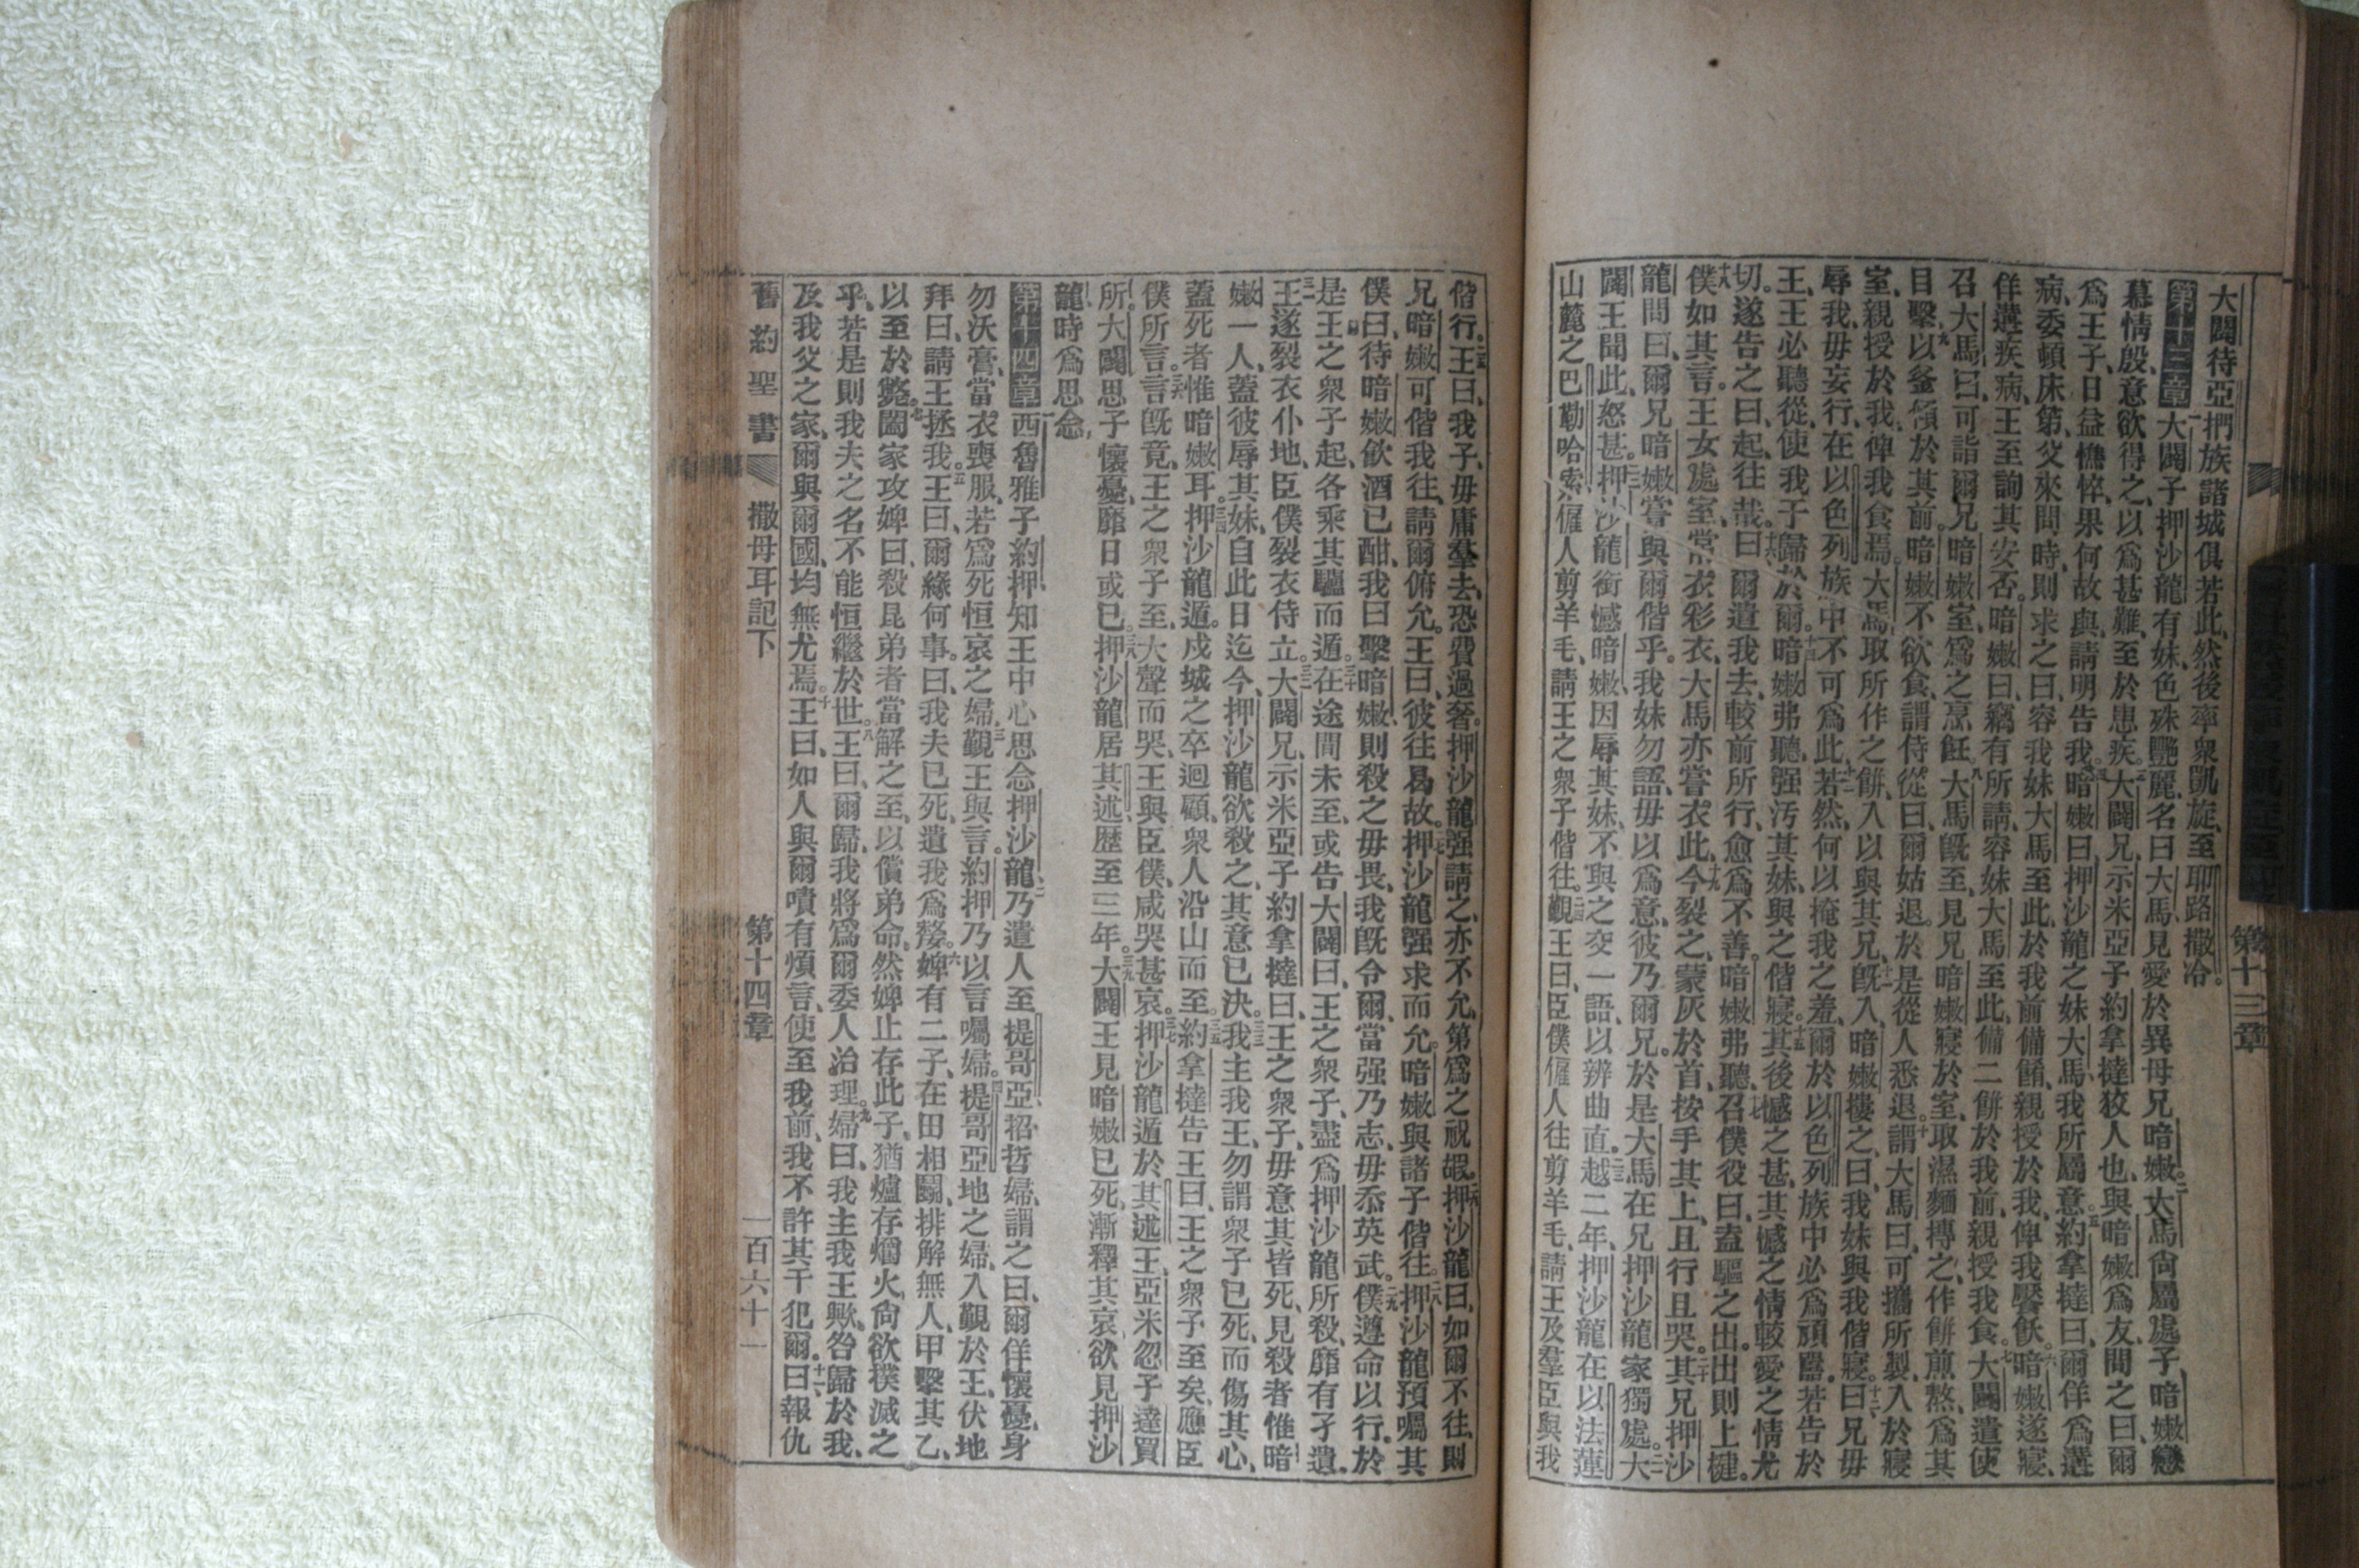 第十三章
大闢待亞捫族諸城俱若此、然後率衆凱旋、至耶路撒冷。
第十三章 一大闢子押沙龍有妹、色殊艷麗、名曰大馬、見愛於異母兄暗嫩。二大馬尙屬處子、暗嫩戀
慕情殷、意欲得之、以爲甚難、至於患疾。三大闢兄示米亞子約拿撻狡人也、與暗嫩爲友、問之曰、爾
爲王子、日益憔悴、果何故與、請明告我。暗嫩曰、押沙龍之妹大馬、我所屬意。五約拿撻曰、爾佯爲遘
病、委頓床笫、父來問時、則求之曰、容我妹大馬至此、於我前備餚、親授於我、俾我饜飫。六暗嫩遂寢、
佯遘疾病、王至詢其安否。暗嫩曰、竊有所請、容妹大馬至此、備二餅於我前、親授我食。七大闢遣使
召大馬曰、可詣爾兄暗嫩室、爲之烹飪。八大馬旣至、見兄暗嫩寢於室、取濕麵摶之、作餅煎熬、爲其
目擊。九以釜傾於其前、暗嫩不欲食、謂侍從曰、爾姑退。於是從人悉退。十謂大馬曰、可攜所製、入於寢
室、親授於我、俾我食焉。大馬取所作之餅、入以與其兄。十一旣入、暗嫩摟之曰、我妹與我偕寢。十二曰、兄毋
辱我、毋妄行、在以色列族中、不可爲此。十三若然、何以掩我之羞、爾於以色列族中必爲頑嚚。若告於
王、王必聽從、使我于歸於爾。十四暗嫩弗聽、强汚其妹、與之偕寢。十五其後憾之甚、其憾之情、較愛之情尤
切。遂告之曰、起、往哉。十六曰、爾遣我去、較前所行、愈爲不善。暗嫩弗聽、十七召僕役曰、盍驅之出、出則上楗。
十八僕如其言。王女處室、常衣彩衣、大馬亦嘗衣此、十九今裂之、蒙灰於首、按手其上、且行且哭。二十其兄押沙
龍問曰、爾兄暗嫩嘗與爾偕乎。我妹勿語、毋以爲意、彼乃爾兄。於是大馬在兄押沙龍家獨處。二一大
闢王聞此、怒甚。二二押沙龍銜憾暗嫩、因辱其妹、不與之交一語、以辨曲直。二三越二年、押沙龍在以法蓮
山麓之巴勒哈索、僱人剪羊毛、請王之衆子偕往。二四覲王曰、臣僕僱人往剪羊毛、請王及羣臣與我
偕行。二五王曰、我子、毋庸羣去、恐費過奢。押沙龍强請之、亦不允、第爲之祝嘏。二六押沙龍曰、如爾不往、則
兄暗嫩可偕我往、請爾俯允。王曰、彼往曷故。二七押沙龍强求而允。暗嫩與諸子偕往。二八押沙龍預囑其
僕曰、待暗嫩飮酒已酣、我曰擊暗嫩、則殺之毋畏、我旣令爾、當强乃志、毋忝英武。二九僕遵命以行。於
是王之衆子起、各乘其驢而遁。三十在途間未至、或告大闢曰、王之衆子、盡爲押沙龍所殺、靡有孑遺。
三一王遂裂衣仆地、臣僕裂衣侍立。三二大闢兄示米亞子約拿撻曰、王之衆子、毋意其皆死、見殺者惟暗
嫩一人、蓋彼辱其妹、自此日迄今、押沙龍欲殺之、其意已決。三三我主我王、勿謂衆子已死、而傷其心、
蓋死者惟暗嫩耳。三四押沙龍遁。戍城之卒迴顧、衆人沿山而至。三五約拿撻告王曰、王之衆子至矣、應臣
僕所言。三六言旣竟、王之衆子至、大聲而哭、王與臣僕、咸哭甚哀。三七押沙龍遁於其述王、亞米忽子達買
所。大闢思子懷憂、靡日或已。三八押沙龍居其述、歷至三年。三九大闢王見暗嫩已死、漸釋其哀、欲見押沙
龍、時爲思念。
第十四章 一西魯雅子約押、知王中心思念押沙龍、二乃遣人至提哥亞、招哲婦、謂之曰、爾佯懷憂、身
勿沃膏、當衣喪服、若爲死恒哀之婦、三覲王與言。約押乃以言囑婦。四提哥亞地之婦、入覲於王、伏地
拜曰、請王拯我。五王曰、爾緣何事。曰、我夫已死、遺我爲嫠。六婢有二子、在田相鬬、排解無人、甲擊其乙、
以至於斃。七闔家攻婢曰、殺昆弟者、當解之至、以償弟命、然婢止存此子、猶爐存爝火、尙欲撲滅之
乎、若是則我夫之名不能恒繼於世。八王曰、爾歸、我將爲爾委人治理。九婦曰、我主我王歟、咎歸於我、
及我父之家、爾與爾國、均無尤焉。十王曰、如人與爾嘖有煩言、使至我前、我不許其干犯爾。十一曰、報仇
舊約聖書 撒母耳記下 第十四章 一百六十一